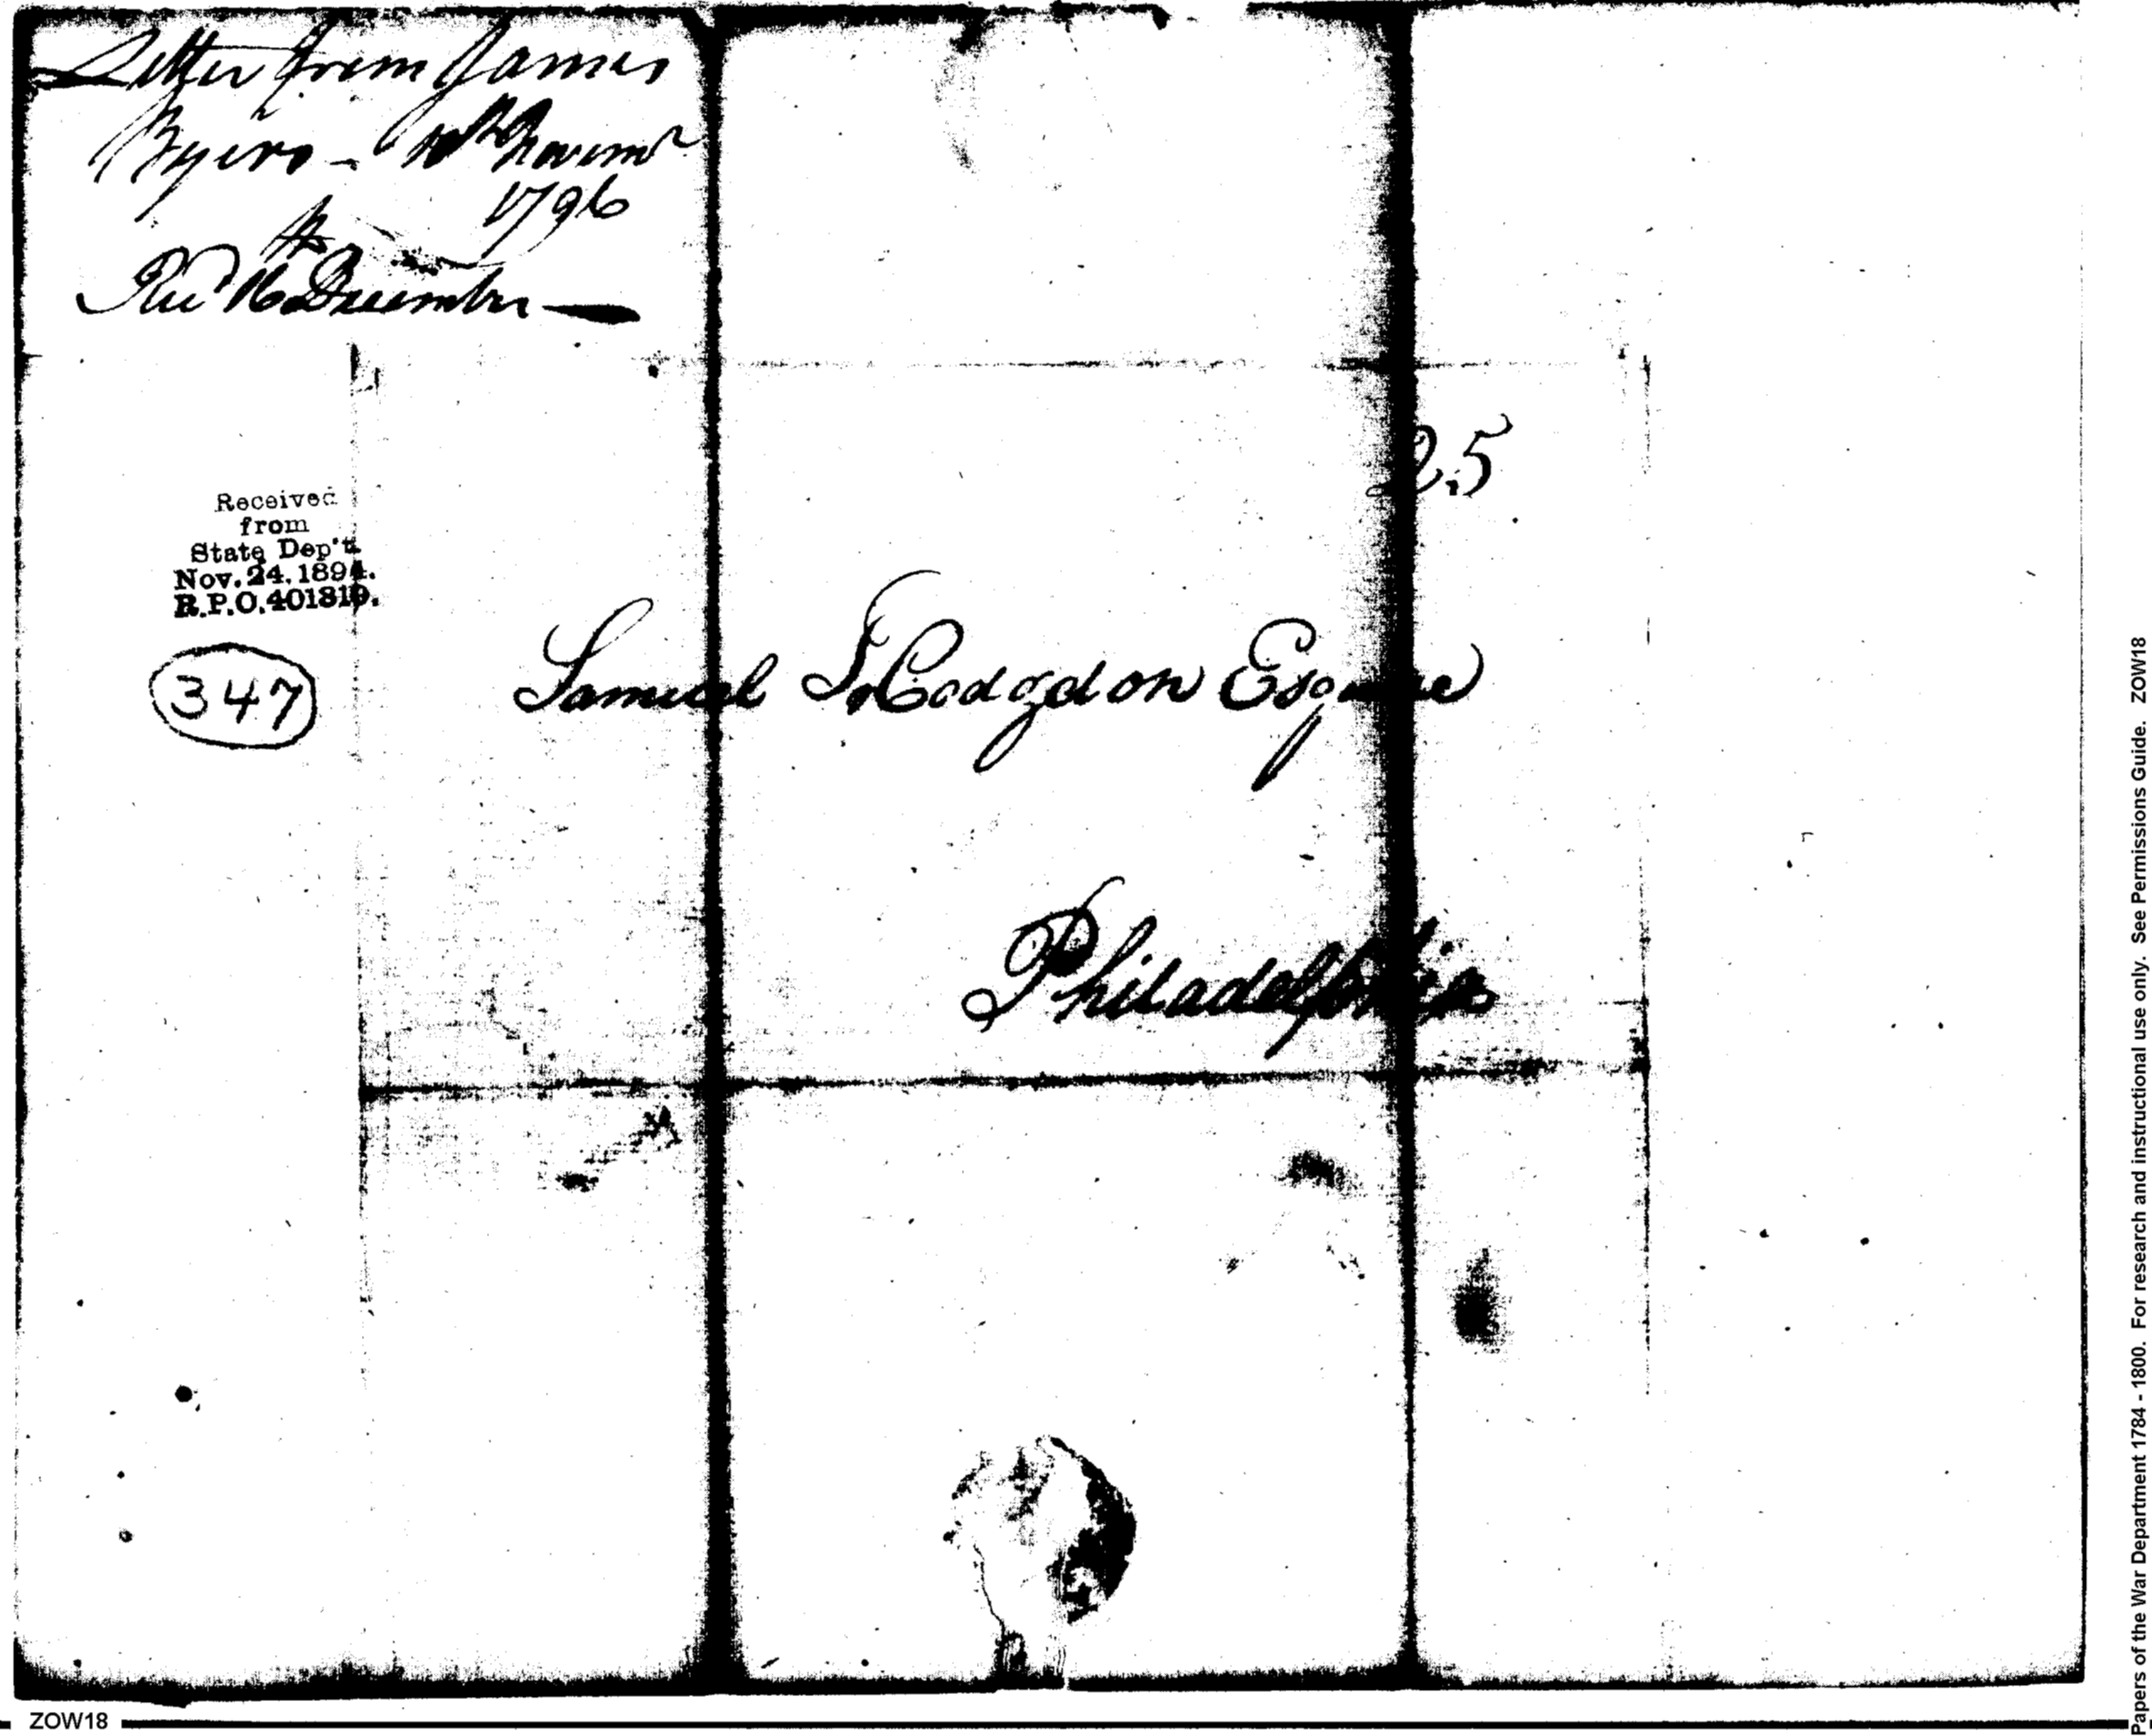 Letter from James
Byers - 10th Novemr
1796
Recd 16th December -
25
Received
from
State Dep't
Nov. 24. 1894.
R.P.O. 401810.
347
Samuel Hodgdon Esquire
Philadelphia
ZOW18
Papers of the War Department 1784 - 1800. For research and instructional use only. See Permissions Guide. ZOW18